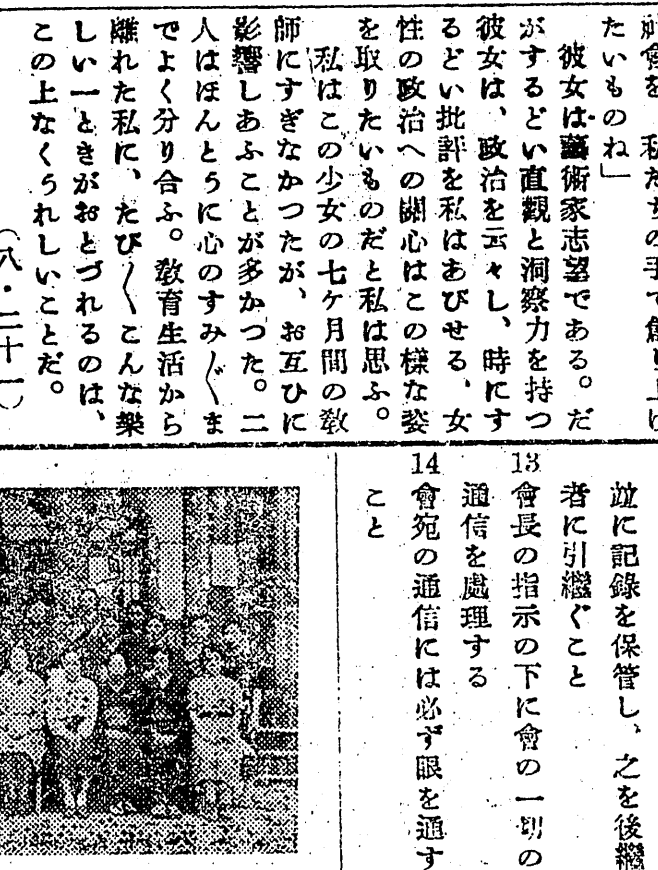 社會を 私たちの手で創り上げ
たいものね」
彼女は藝術家志望である。だ
がするどい直觀と洞察力を持つ
彼女は、政治を云々し、時にす
るどい批評を私はあびせる、女
性の政治への關心はこの樣な姿
を取りたいものだと私は思ふ。
私はこの少女の七ケ月間の敎
師にすぎなかつたが、お互ひに
影響しあふことが多かつた。二
人はほんとうに心のすみ〲ま
でよく分り合ふ。敎育生活から
離れた私に、たび〱こんな樂
しい一ときがおとづれるのは、
この上なくうれしいことだ。
(八・二十一)
竝に記錄を保管し、之を後繼
者に引繼ぐこと
13 會長の指示の下に會の一切の
通信を處理する
14 會宛の通信には必ず眼を通す
こと